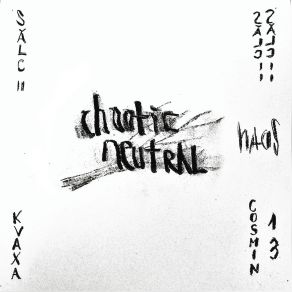 SĂLCII
chaotic
neutral
HAOS
KVAXA
COSMIN
13